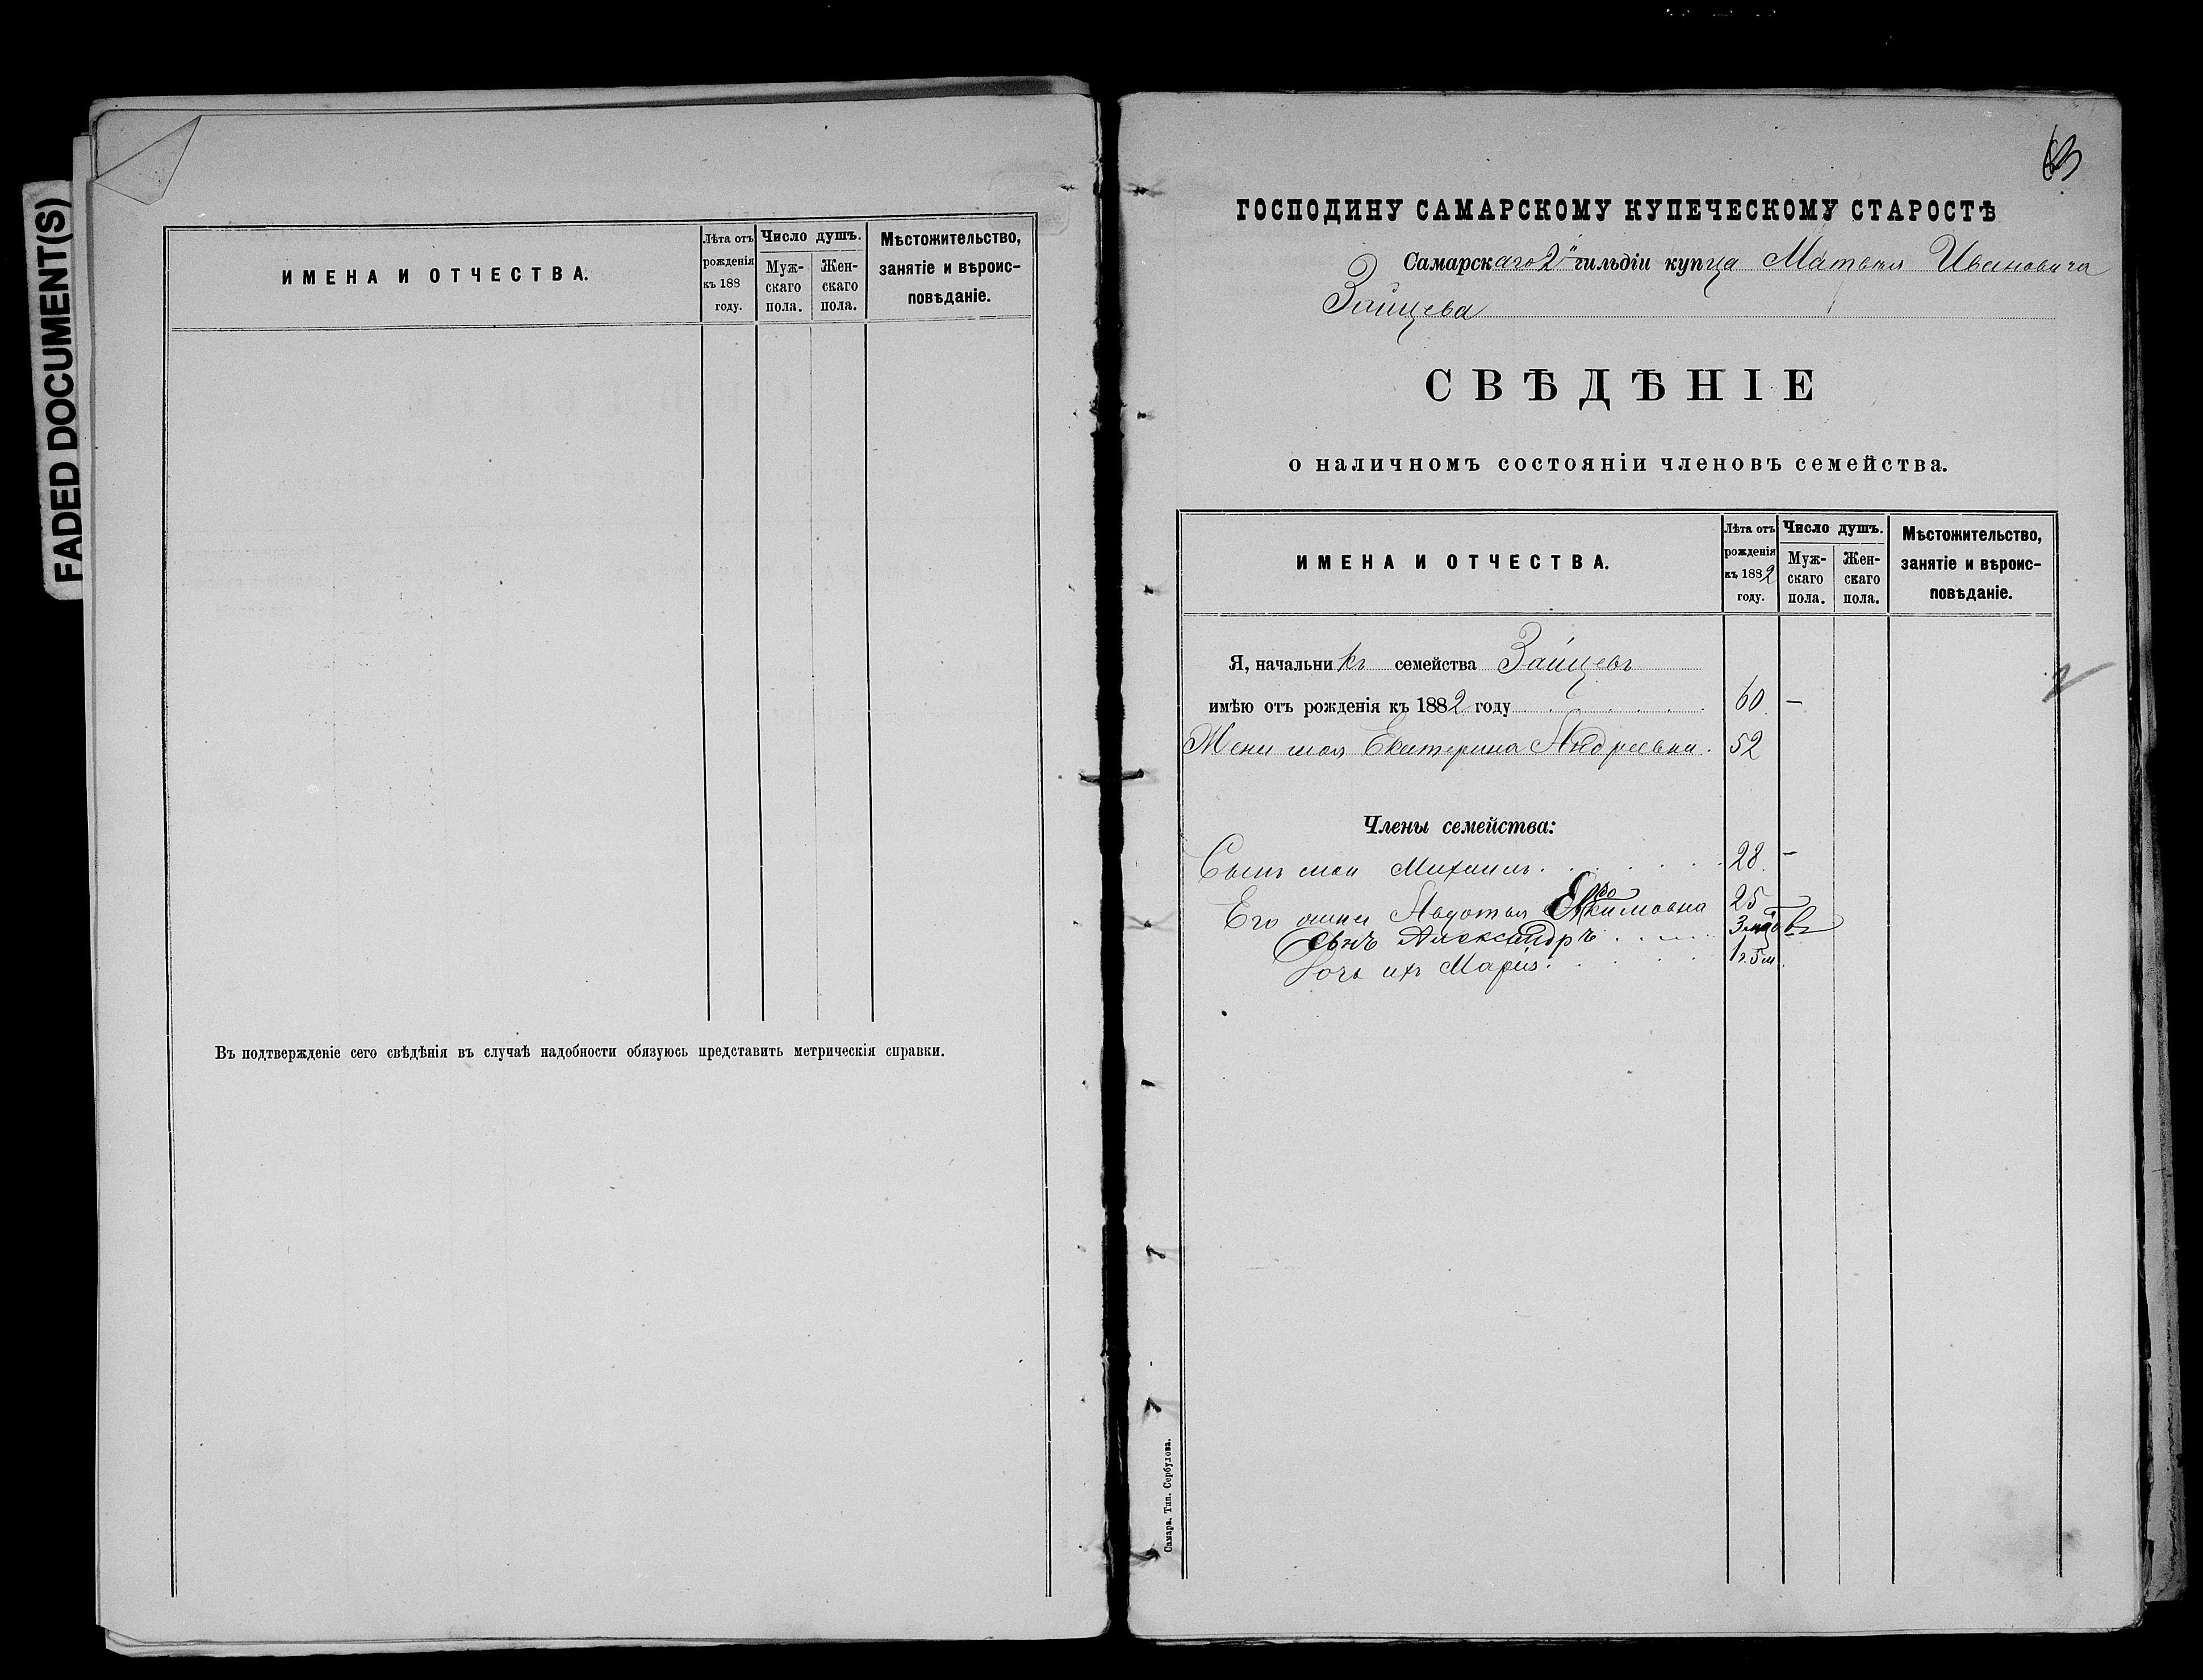 FADED DOCUMENT(S)
ИМЕНА И ОТЧЕСТВА.
Лѣта отъ рожденія къ 188 году.
Число душъ.
Мужскаго пола.
Женскаго пола.
Мѣстожительство, занятіе и вѣроисповѣданіе.
Въ подтвержденіе сего свѣдѣнія въ случаѣ надобности обязуюсь представить метрическія справки.
63
ГОСПОДИНУ САМАРСКОМУ КУПЕЧЕСКОМУ СТАРОСТѢ
Самарскаго 2й гильдіи купца Матвея Ивановича
Зайцева
СВѢДѢНІЕ
о наличномъ состояніи членовъ семейства.
ИМЕНА И ОТЧЕСТВА.
Лѣта отъ рожденія къ 1882 году.
Число душъ.
Мужскаго пола.
Женскаго пола.
Мѣстожительство, занятіе и вѣроисповѣданіе.
Я, начальникъ семейства Зайцевъ
имѣю отъ рожденія къ 1882 году 60 —
Жена моя Екатерина Андреевна. 52
2
Члены семейства:
Сынъ мой Михаилъ. 28 —
Его жена Авдотья 25
Сынъ Александръ
Дочь ихъ Марія. 1 г. 5 м.
Самара. Тип. Сербулова.